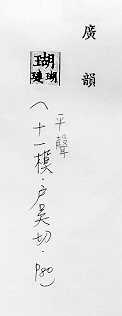 廣韻
瑚
瑚璉
平聲
(十一模·戶吳切·P80)